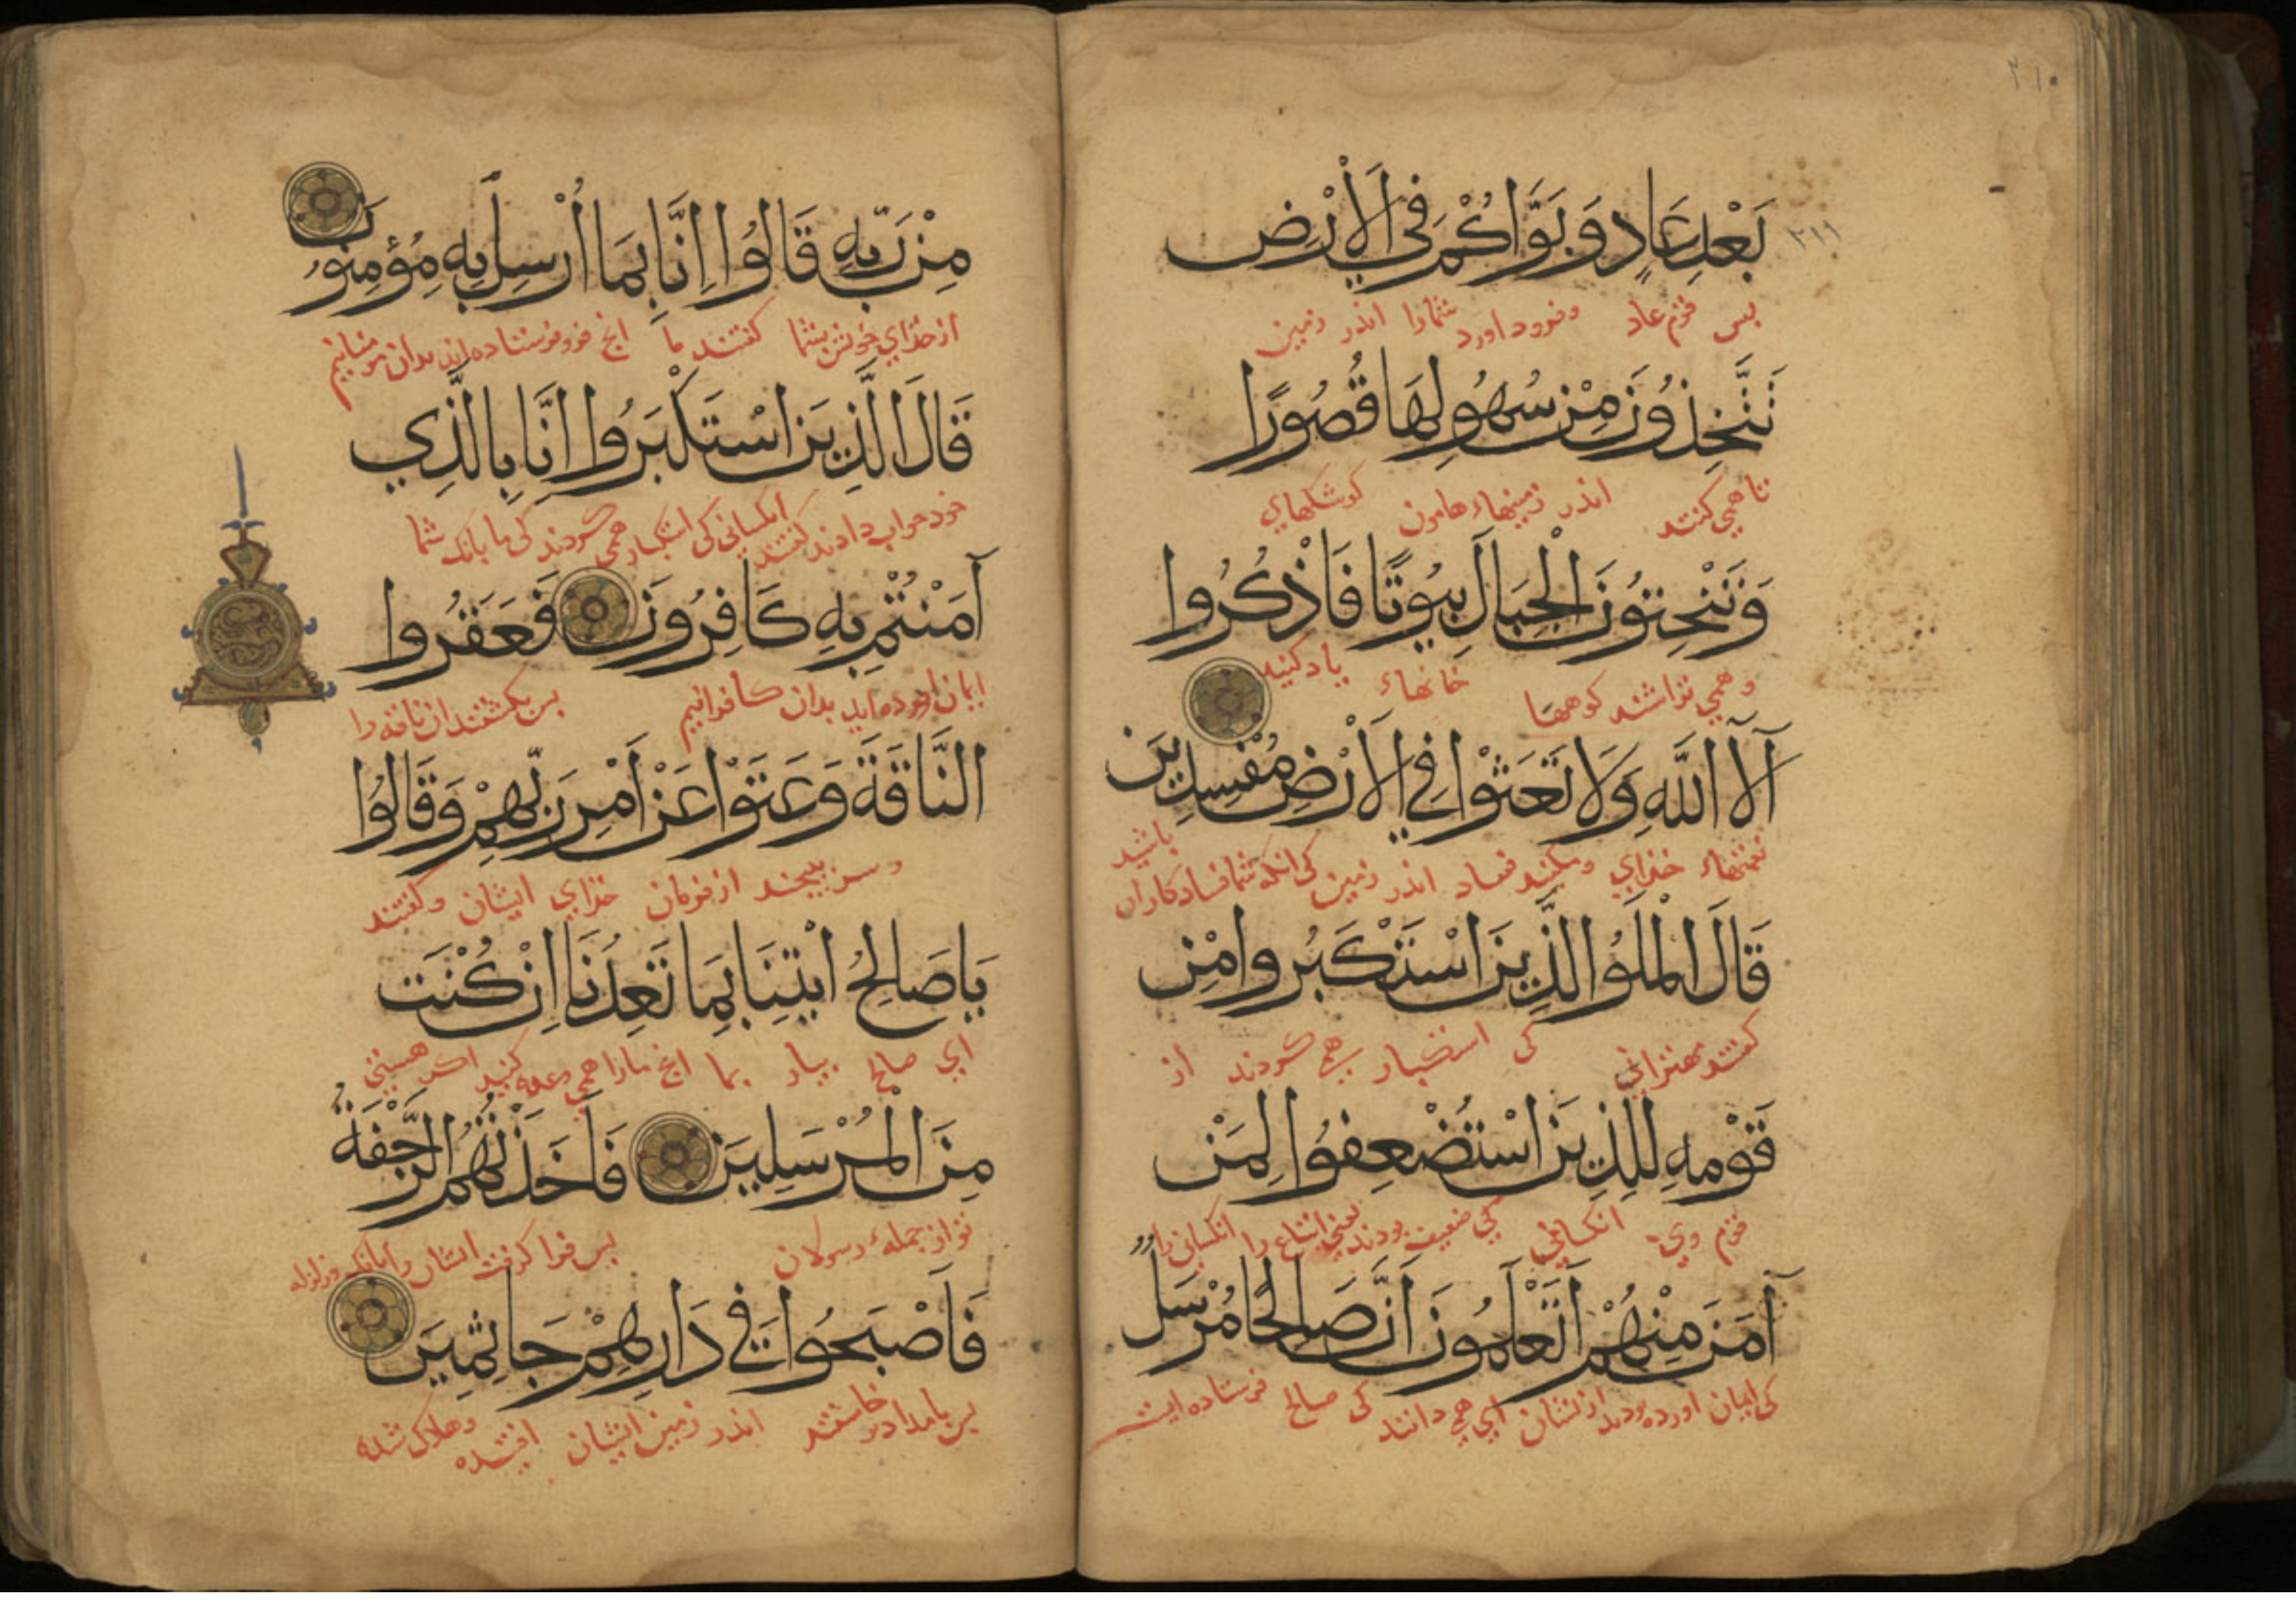 ٢١٠
٢١١
بَعْدِ عَادٍ وَبَوَّاكُمْ فِي الْاَرْضِ
بس قوم عاد وفرود اورد شمارا اندر زمين
تَتَّخِذُونَ مِنْ سُهُولِهَا قُصُورًا
تا همي كنند اندر زمينهاء هامون كوشكهاي
وَتَنْحِتُونَ الْجِبَالَ بُيُوتًا فَاذْكُرُوا
وهمي تراشند كوهها خانهاء ياد كنيد
آلَآ اللَّهِ وَلَا تَعْثَوْا فِي الْاَرْضِ مُفْسِدِينَ
نعمتهاء خذاي ومكنيد فساد اندر زمين كي انكه شما فساد كاران باشيد
قَالَ الْمَلَؤُا الَّذِينَ اسْتَكْبَرُوا مِنْ
كفتند مهتراني كي استكبار همي كردند از
قَوْمِهِ لِلَّذِينَ اسْتُضْعِفُوا لِمَنْ
قوم وي انكساني كي ضعيف بودند يعني اتباع را انكساني را
آمَنَ مِنْهُمْ اَتَعْلَمُونَ اَنَّ صَالِحًا مُرْسَلٌ
كي ايمان اورده بودند ازيشان اي همي دانند كي صالح فرستاده ايست
مِنْ رَبِّهِ قَالُوا اِنَّا بِمَا اُرْسِلَ بِهِ مُؤْمِنُونَ
از خذاي خويش بشما كفتند ما انج فرو فرستاده اند بدان مومنانيم
قَالَ الَّذِينَ اسْتَكْبَرُوا اِنَّا بِالَّذِي
خود جواب دادند كفتند انكساني كي استكبار همي كردند كي ما بانك شما
آمَنْتُمْ بِهِ كَافِرُونَ فَعَقَرُوا
ايمان اورده ايد بدان كافرانيم بس بكشتند ان ناقه را
النَّاقَةَ وَعَتَوْا عَنْ اَمْرِ رَبِّهِمْ وَقَالُوا
وسر بيجند از فرمان خذاي ايشان وكفتند
يَا صَالِحُ ائْتِنَا بِمَا تَعِدُنَا اِنْ كُنْتَ
اي صالح بيار بما انج مارا همي وعده كنيد اكر هستي
مِنَ الْمُرْسَلِينَ فَاَخَذَتْهُمُ الرَّجْفَةُ
تو از جملهء رسولان بس فرا كرفت ايشان را بانك وزلزله
فَاَصْبَحُوا فِي دَارِهِمْ جَاثِمِينَ
بس بامداد خاستند اندر زمين ايشان افتيده وهلاك شده